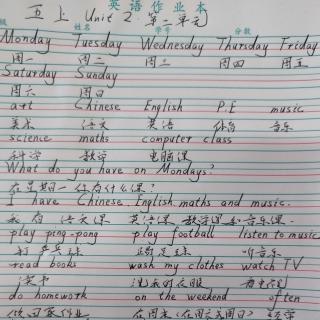 英语作业本
五上 Unit 2 第二单元
姓名 学号 分数
Monday Tuesday Wednesday Thursday Friday
周一 周二 周三 周四 周五
Saturday Sunday
周六 周日
art Chinese English P.E music
美术 语文 英语 体育 音乐
science maths computer class
科学 数学 电脑课
What do you have on Mondays?
在星期一你有什么课?
I have Chinese. English. maths and music.
我有 语文课 英语课 数学课和音乐课.
play ping-pong play football listen to music
打乒乓球 踢足球 听音乐
read books wash my clothes watch TV
读书 洗我的衣服 看电视
do homework on the weekend often
做回家作业 在周末(在周六或周日) 经常